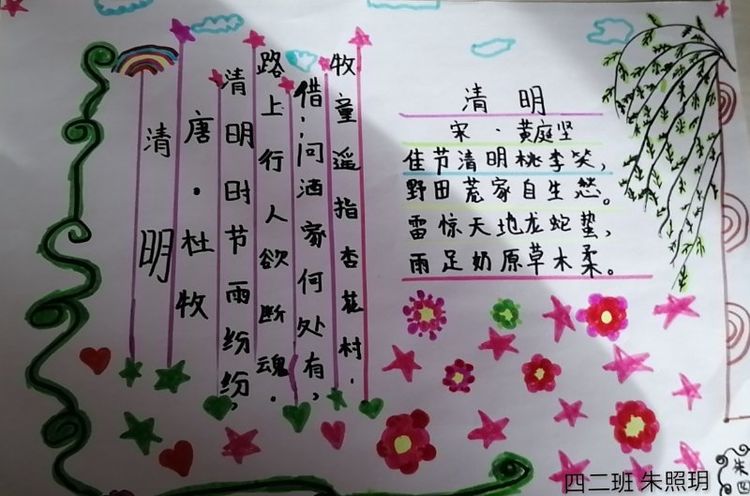 清明
唐·杜牧
清明时节雨纷纷,
路上行人欲断魂.
借问酒家何处有,
牧童遥指杏花村.
清明
宋·黄庭坚
佳节清明桃李笑,
野田荒家自生。
雷惊天地龙蛇蛰,
雨足奶原草木柔。
四二班 朱照玥